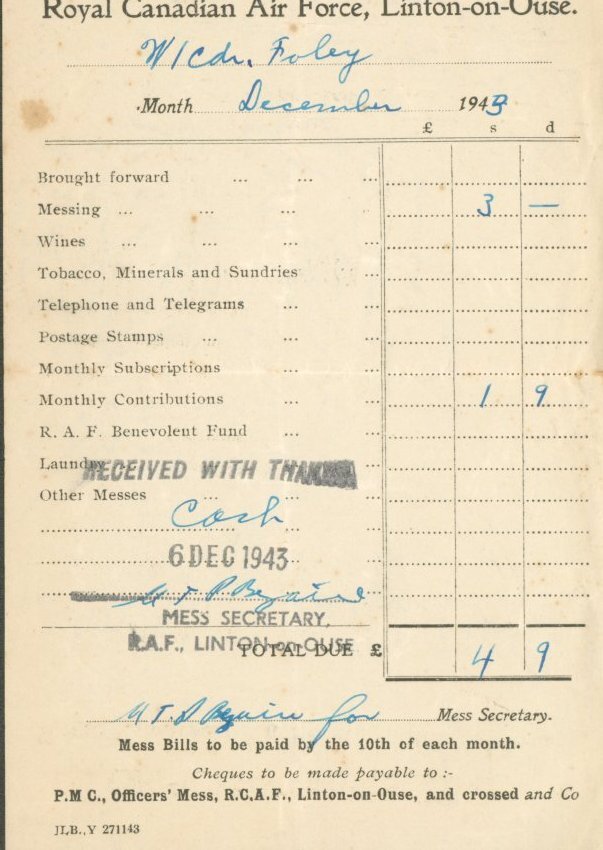 Royal Canadian Air Force, Linton-on-Ouse.
W/Cdr. Foley
Month December 1943
£ s d
Brought forward ... ... ...
Messing ... ... ... ... 3 —
Wines ... ... ... ...
Tobacco, Minerals and Sundries ...
Telephone and Telegrams ... ...
Postage Stamps ... ... ...
Monthly Subscriptions ... ...
Monthly Contributions ... ... 1 9
R. A. F. Benevolent Fund ... ...
Laundry ...
RECEIVED WITH THANKS
Other Messes ... ... ...
Cash
6 DEC 1943
MESS SECRETARY,
R.A.F., LINTON-on-OUSE
TOTAL DUE £ 4 9
for Mess Secretary.
Mess Bills to be paid by the 10th of each month.
Cheques to be made payable to :-
P.M C., Officers' Mess, R.C.A.F., Linton-on-Ouse, and crossed and Co
J.L.B., Y 271143